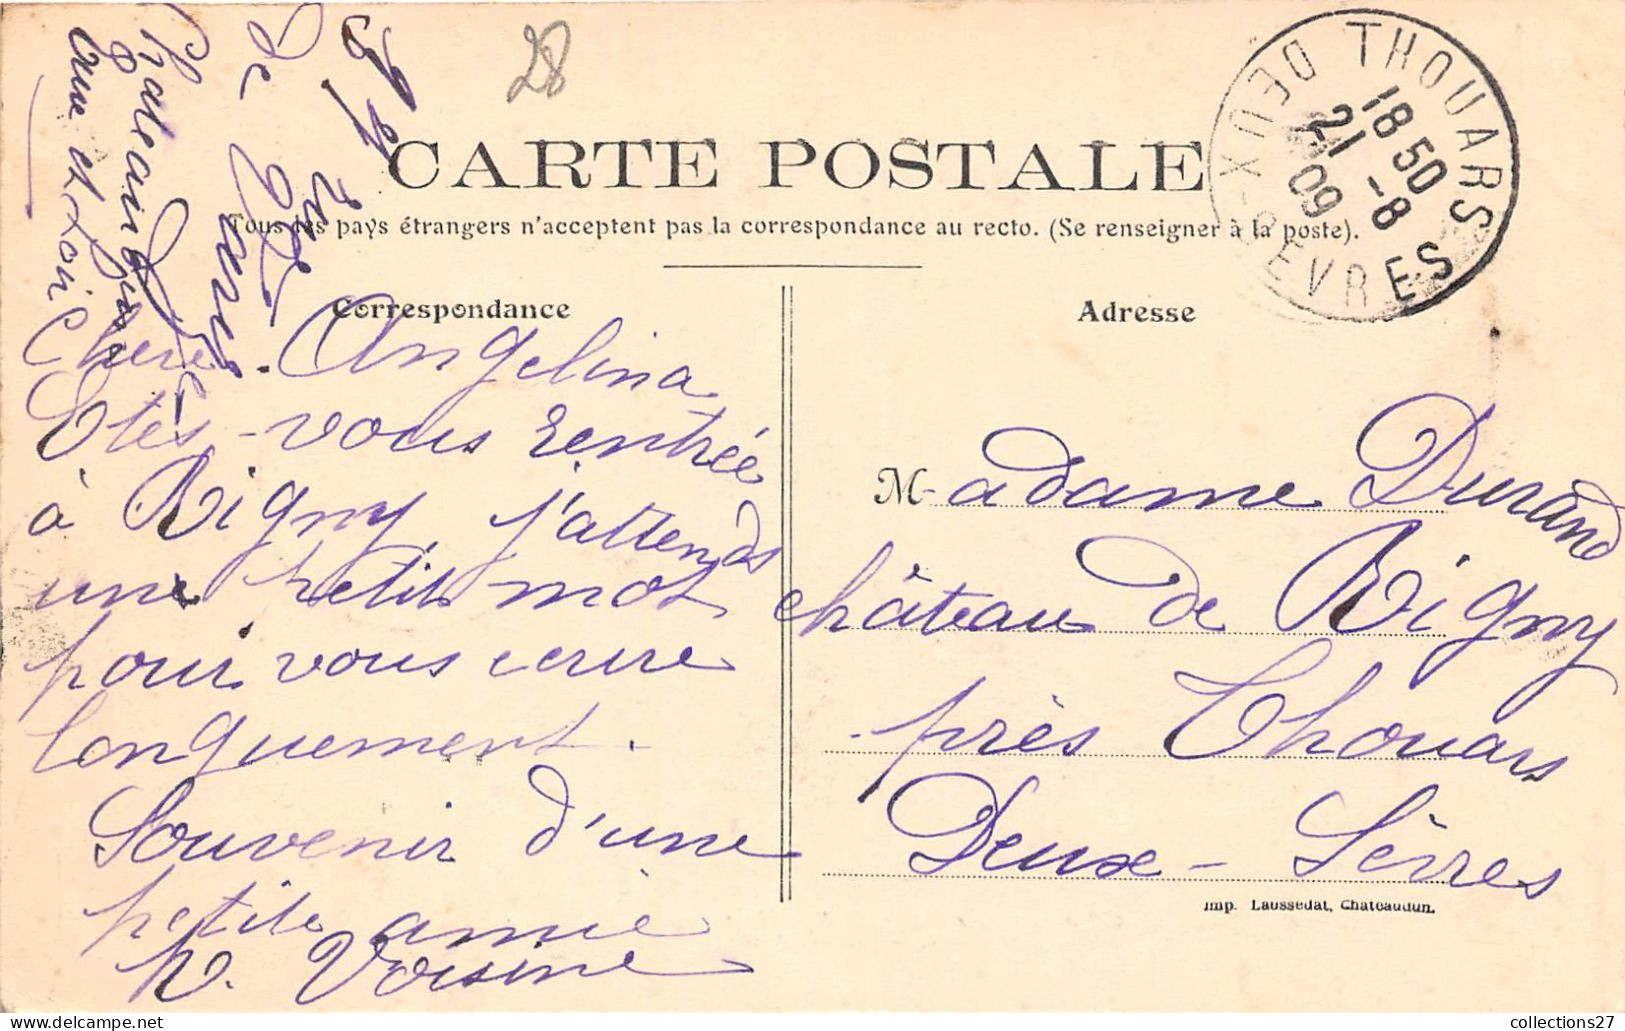 28
59 rue
de Paris
Chateaudun
Eure et Loir
CARTE POSTALE
Tous les pays étrangers n'acceptent pas la correspondance au recto. (Se renseigner à la poste).
THOUARS
18 50
21 -8
09
DEUX-SEVRES
Correspondance
Chere Angelina
Etes-vous rentrée
à Rigny, j'attends
une petit mot
pour vous ecrire
longuement.
Souvenir d'une
petite amie
Voisine
Adresse
Madame Durand
château de Rigny
près Thouars
Deux-Sèvres
Imp. Laussedat, Chateaudun.
collections27